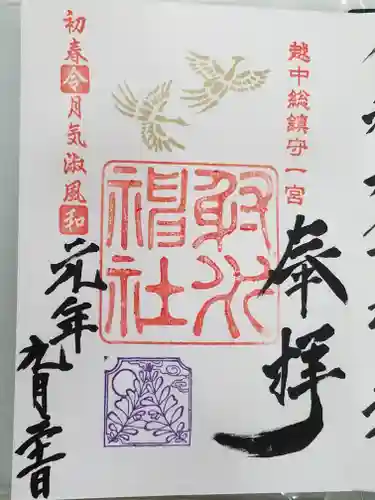 越中総鎮守一宮
奉拝
射水
神社
初春令月気淑風和
元年
九月